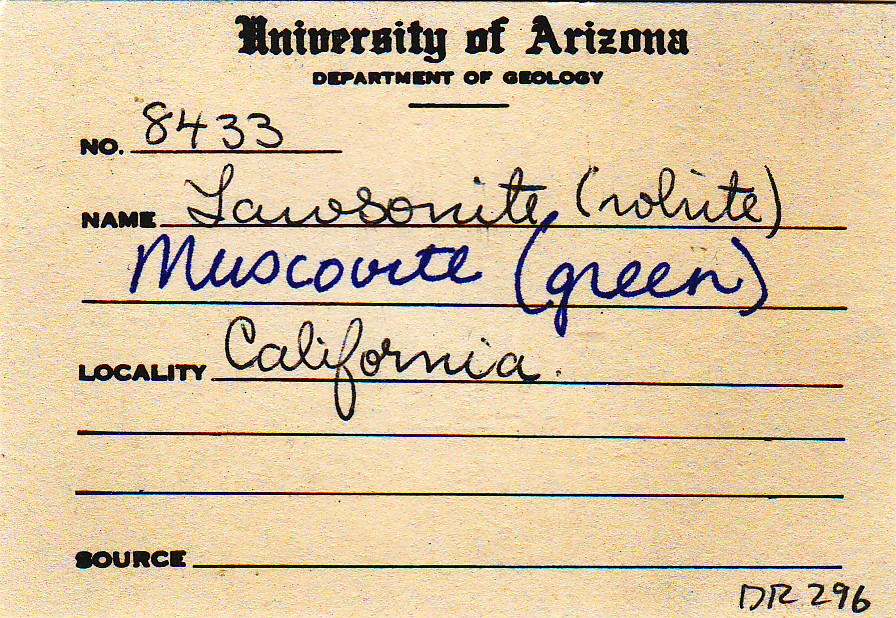 University of Arizona
DEPARTMENT OF GEOLOGY
NO. 8433
NAME Lawsonite (white)
Muscovite (green)
LOCALITY California.
SOURCE
DR 296